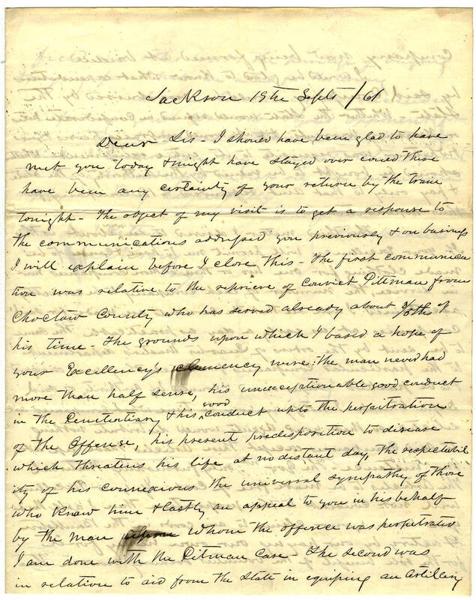 Jackson 19th Septr /61
Dear Sir - I should have been glad to have
met you today & might have stayed over could there
have been any certainty of your return by the train
tonight - The object of my visit is to get a response to
the communications addressed you previously & on business
I will explain before I close this - The first communica
tion was relative to the reprieve of Convict Pittman from
Choctaw County who has served already about of
his time - The grounds upon which I based a hope of
your Excellency's clemency were: the man never had
more than half sense, his unexceptionable good conduct
in the Penitentiary, & his good conduct up to the perpitration
of the Offense, his present predisposition to disease
which threatens his life at no distant day, the respectabil
ity of his connexions the universal sympathy of those
who know him & lastly an appeal to you in his behalf
by the man upon whom the offence was perpetrated
I am done with the Pitman Case - The second was
in relation to aid from the State in equiping an Artillery